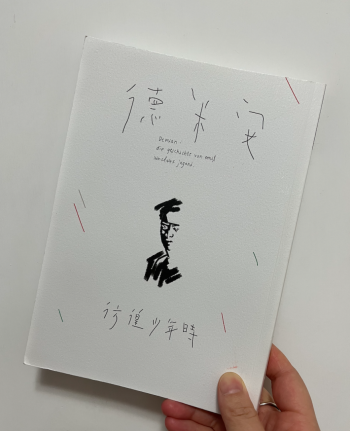 德米安
Demian:
die geschichte von emil
sinclairs jugend
徬徨少年時